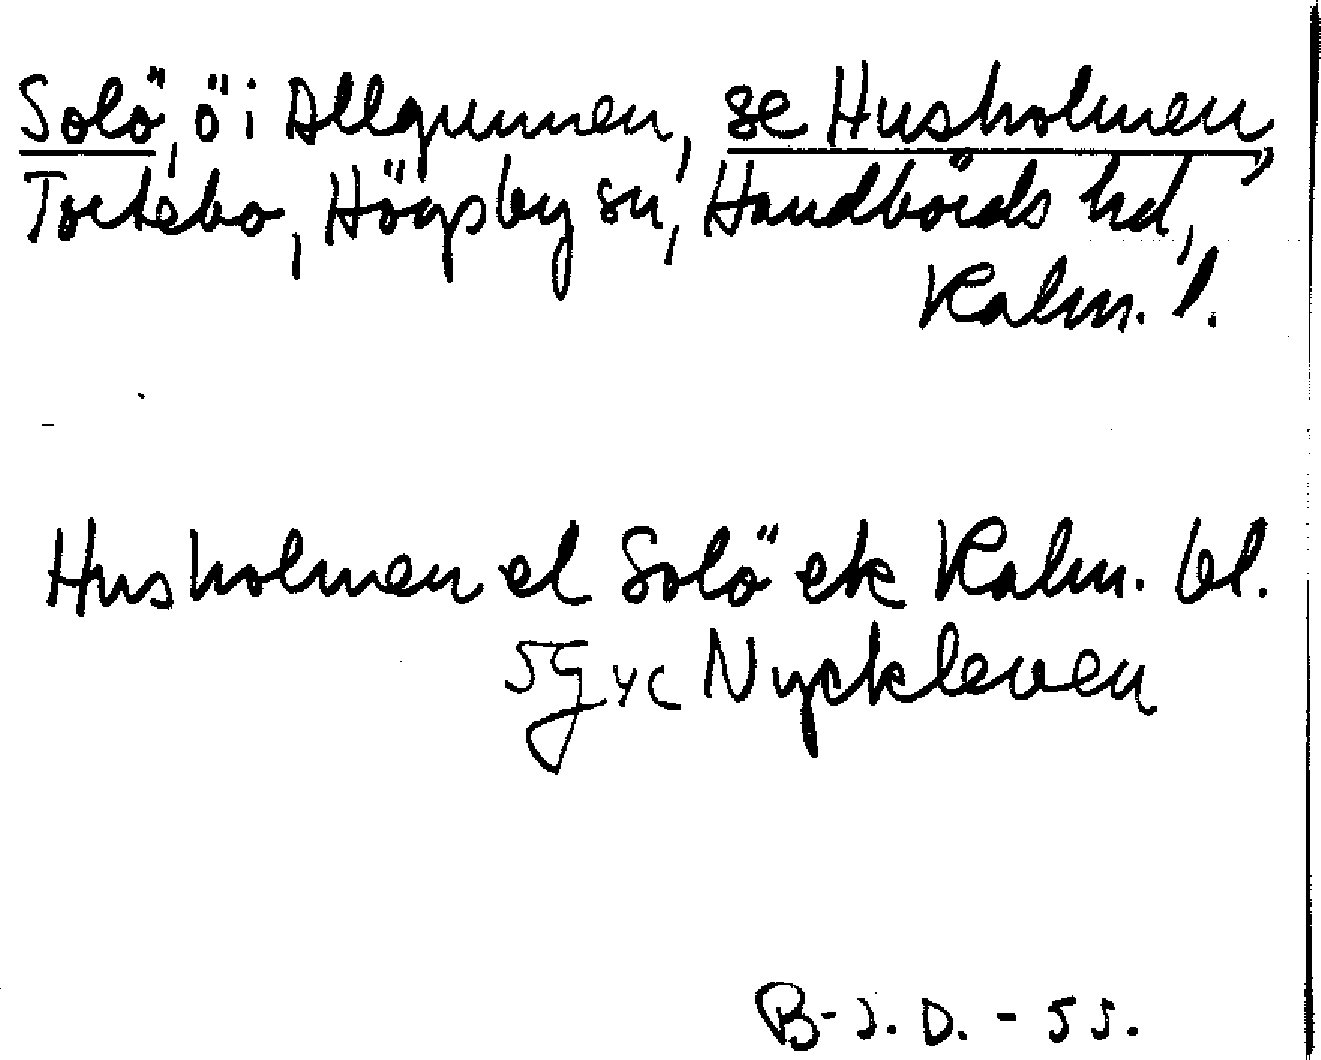 Solö, ö i Allgunnen, se Husholmen,
Tortebo, Högsby sn, Handbörds hd,
Kalm. l.
Husholmen el Solö ek Kalm. bl.
5G yc Nyckleven
B-J.D. - 55.